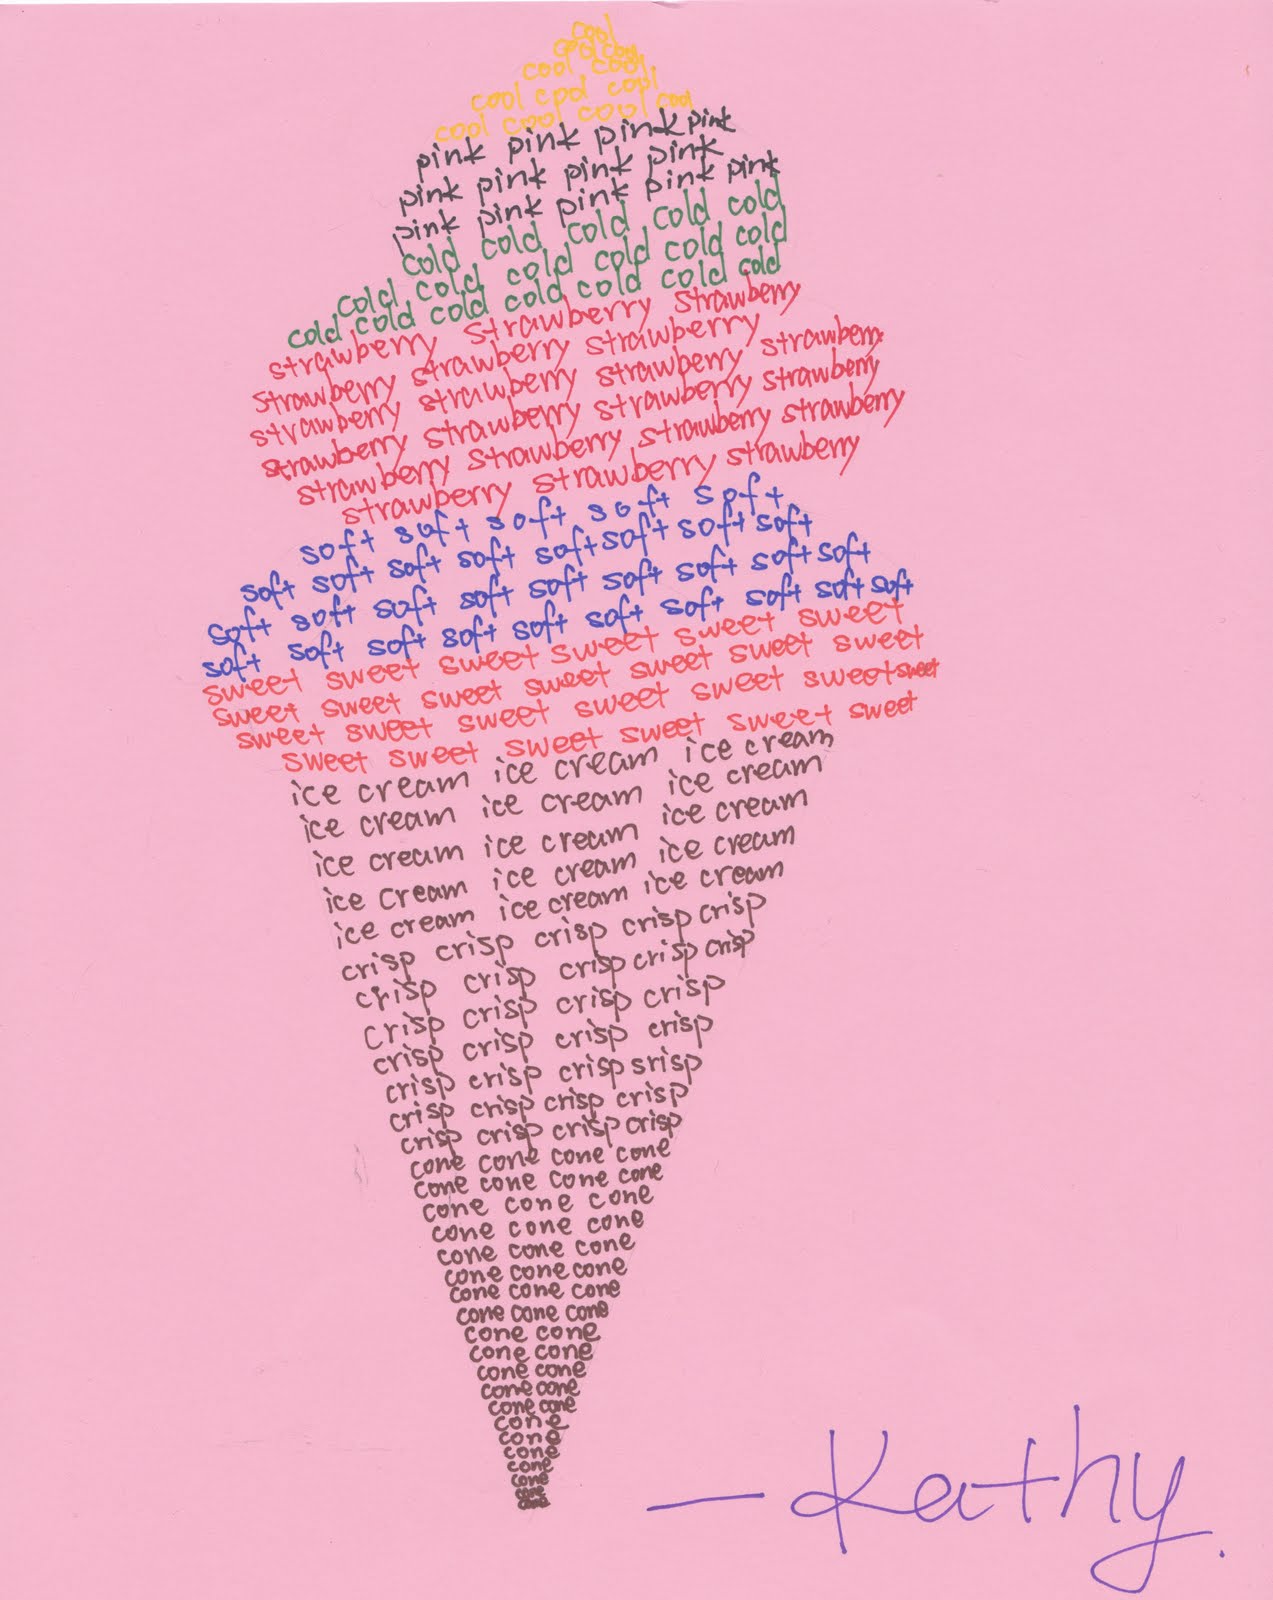 cool
cool cool
cool cool
cool cpol cool
cool cool cool cool
pink pink pink pink
pink pink pink pink
pink pink pink pink pink
cold cold cold cold cold
cold cold cold cold cold cold
cold cold cold cold cold cold cold
strawberry strawberry strawberry
strawberry strawberry strawberry
strawberry strawberry strawberry strawberry
strawberry strawberry strawberry strawberry
strawberry strawberry strawberry strawberry
strawberry strawberry strawberry
soft soft soft soft soft
soft soft soft soft soft soft soft soft
soft soft soft soft soft soft soft soft soft
soft soft soft soft soft soft soft soft soft soft
sweet sweet sweet sweet sweet sweet
sweet sweet sweet sweet sweet sweet sweet
sweet sweet sweet sweet sweet sweet sweet
sweet sweet sweet sweet sweet sweet
ice cream ice cream ice cream
ice cream ice cream ice cream
ice cream ice cream ice cream
ice cream ice cream ice cream
ice cream ice cream ice cream
crisp crisp crisp crisp crisp
crisp crisp crisp crisp crisp
crisp crisp crisp crisp
crisp crisp crisp crisp
crisp crisp crisp srisp
crisp crisp crisp crisp
crisp crisp crisp crisp
cone cone cone cone
cone cone cone cone
cone cone cone
cone cone cone
cone cone cone
cone cone cone
cone cone cone
cone cone cone
cone cone
cone cone
cone cone
cone cone
cone cone
cone
cone
cone
cone
cone
cone
cone
— Kathy.